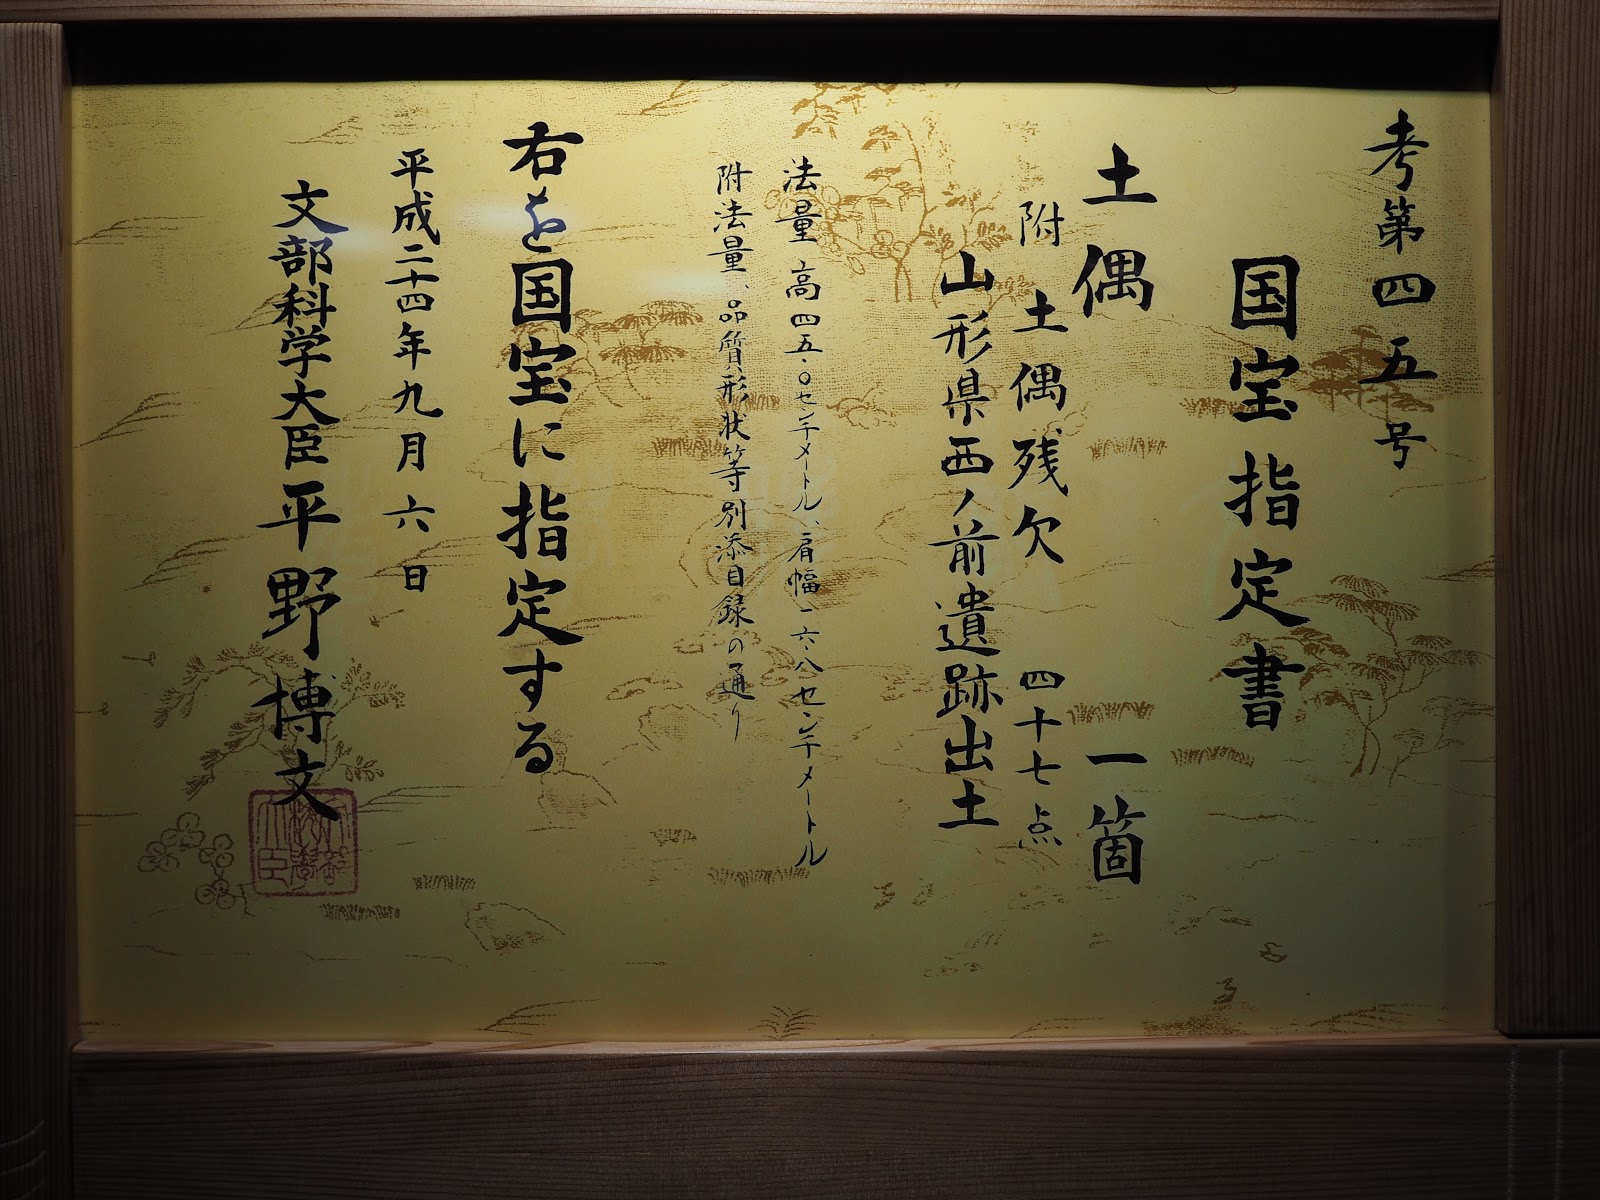 考第四五号
国宝指定書
土偶 一箇
附 土偶残欠 四十七点
山形県西ノ前遺跡出土
法量 高四五・〇センチメートル、肩幅一六・八センチメートル
附法量、品質形状等別添目録の通り
右を国宝に指定する
平成二十四年九月六日
文部科学大臣 平野博文